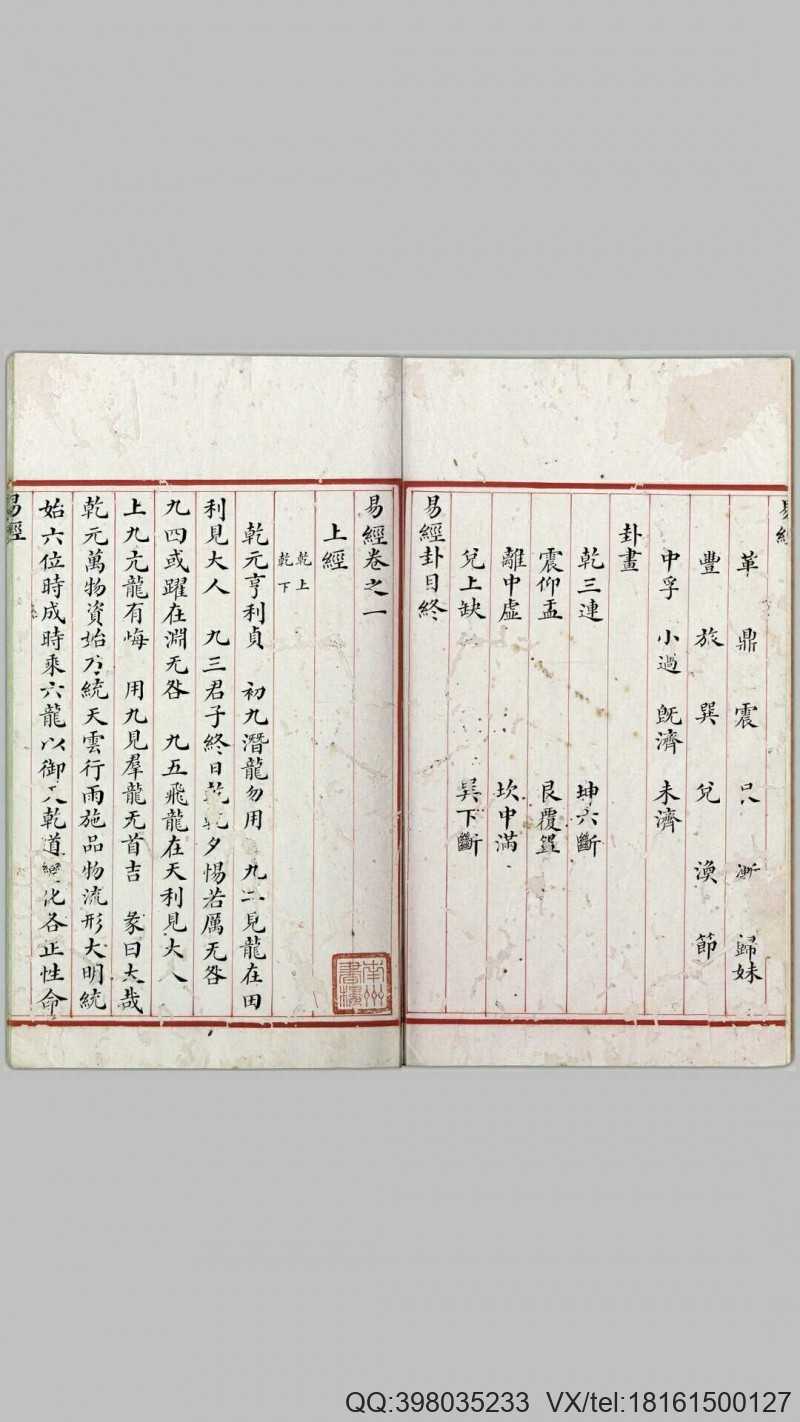 易經
革 鼎 震 艮 漸 歸妹
豐 旅 巽 兌 渙 節
中孚 小過 既濟 未濟
卦畫
乾三連 坤六斷
震仰盂 艮覆盌
離中虛 坎中滿
兌上缺 巽下斷
易經卦目終
易經卷之一
上經
乾上
乾下
乾元亨利貞 初九潛龍勿用 九二見龍在田
利見大人 九三君子終日乾乾夕惕若厲无咎
九四或躍在淵无咎 九五飛龍在天利見大人
上九亢龍有悔 用九見羣龍无首吉 彖曰大哉
乾元萬物資始乃統天雲行雨施品物流形大明終
始六位時成時乘六龍以御天乾道變化各正性命
易經
南州書樓
QQ:398035233 VX/tel:18161500127